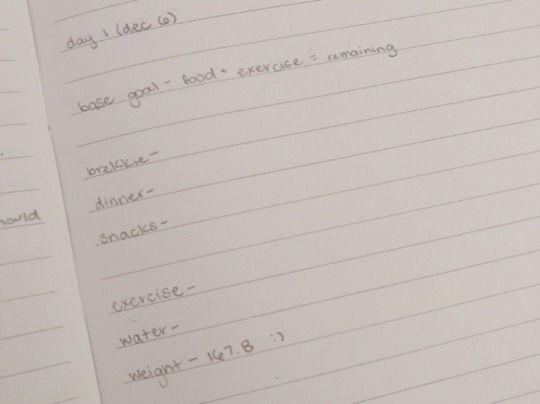 day 1 (dec 6)
base goal - food + exercise = remaining
brekkie -
dinner -
snacks -
hould
exercise -
water -
weight - 167.8 :)